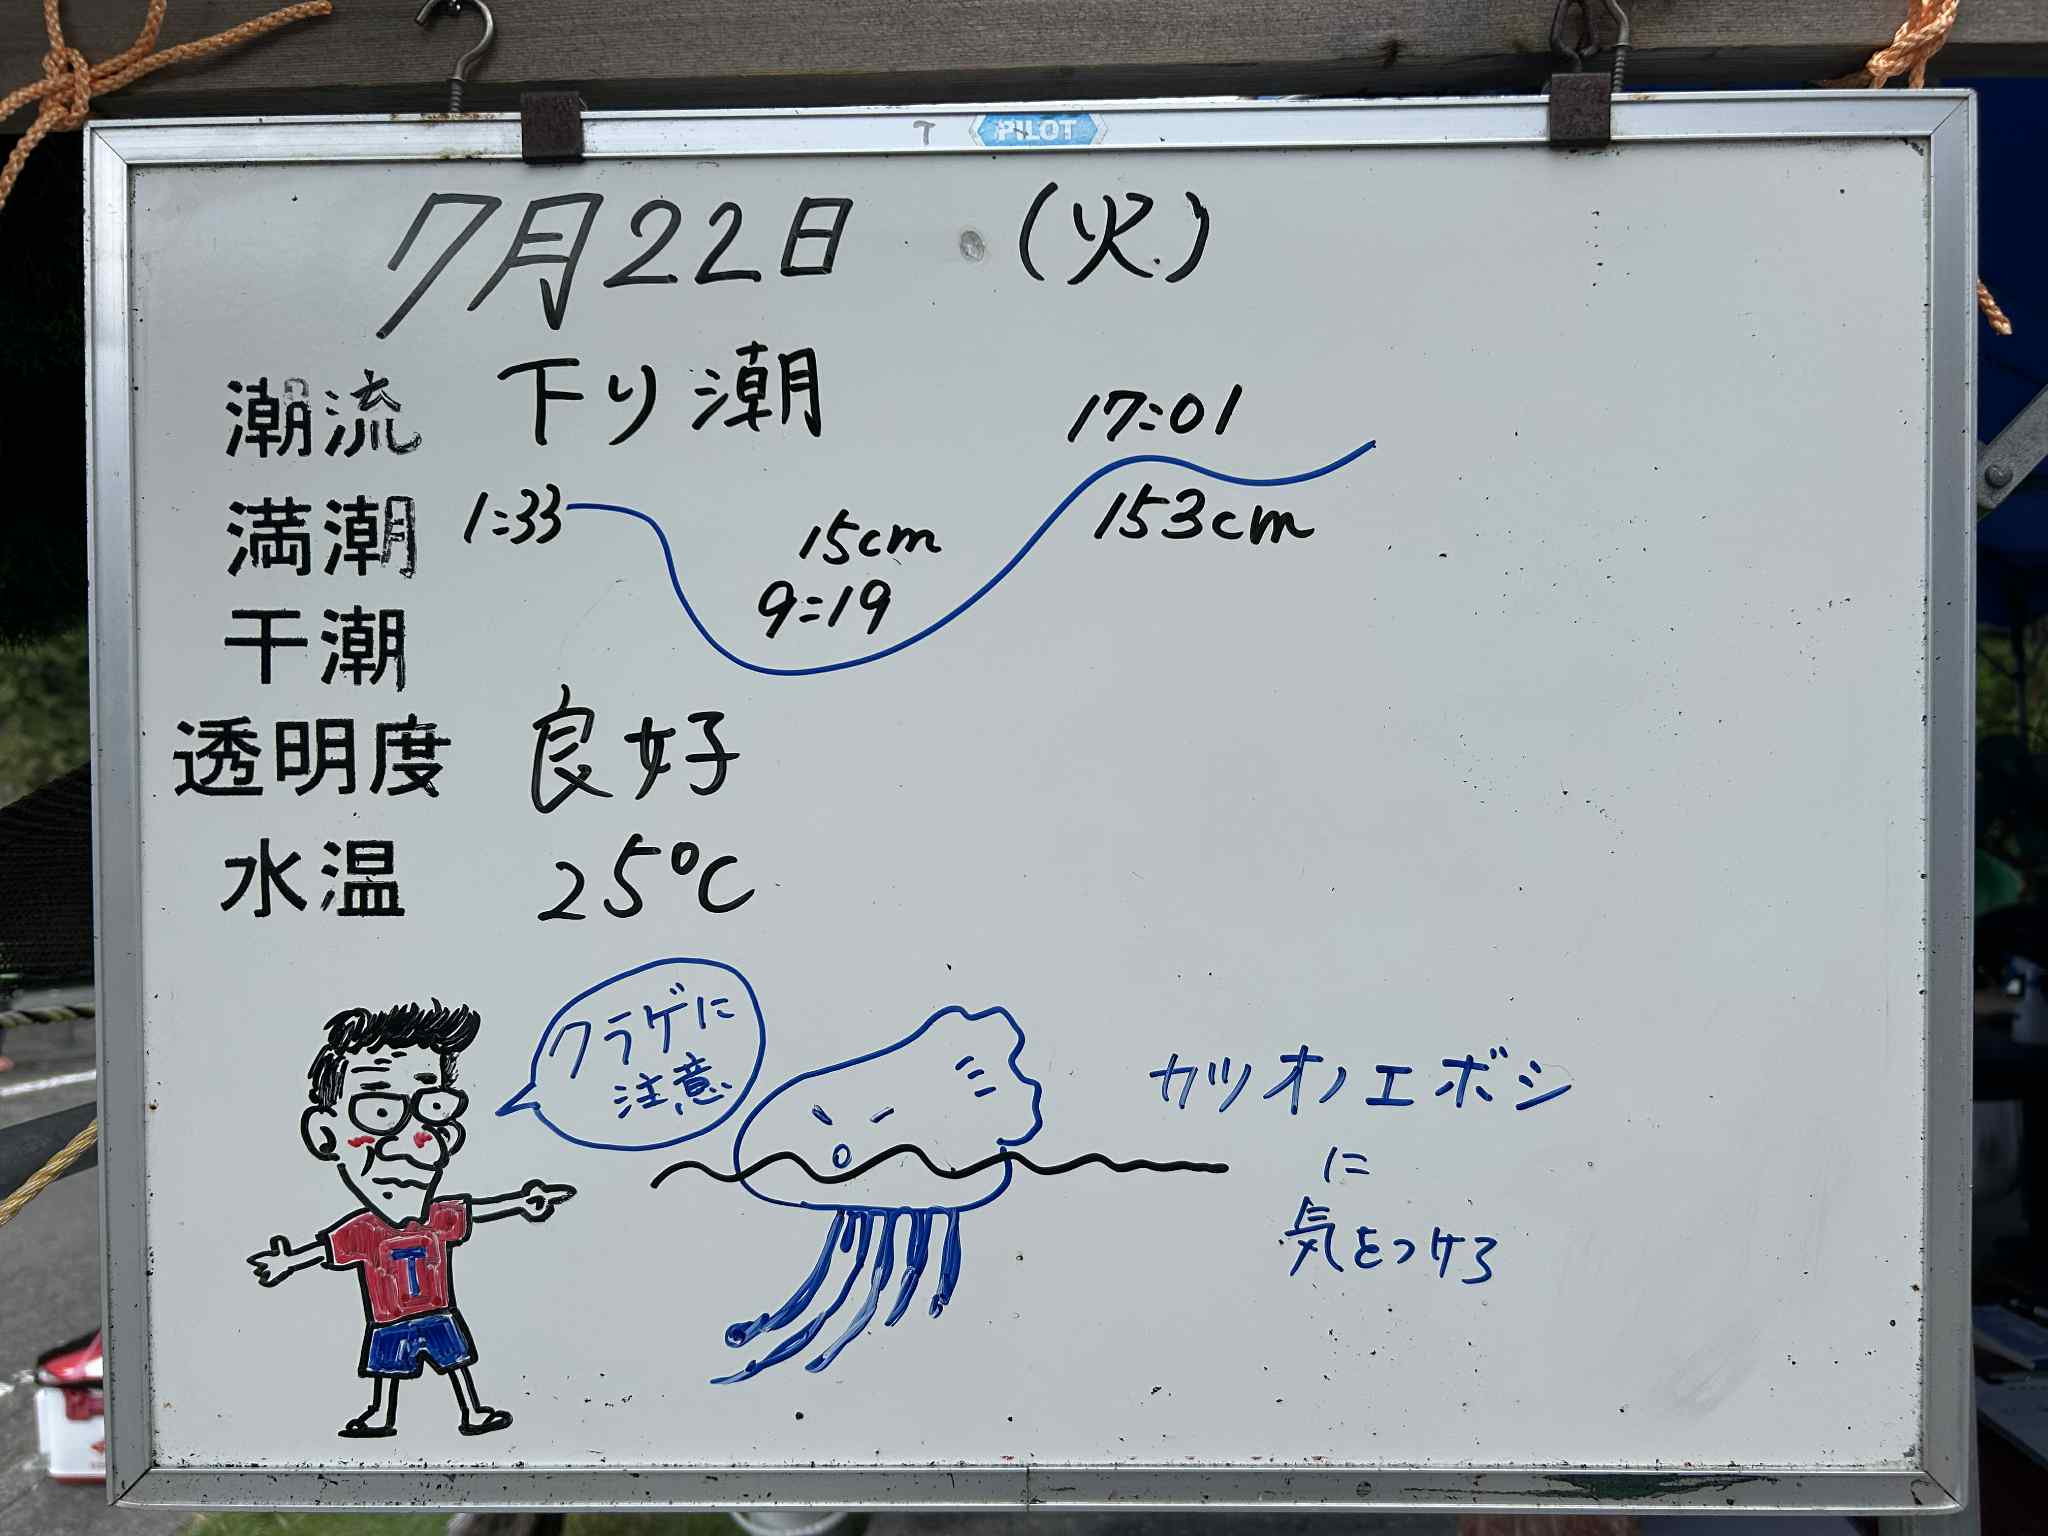 T PILOT
7月22日 (火)
潮流 下り潮
17:01
満潮 1:33
15cm 153cm
9:19
干潮
透明度 良好
水温 25℃
クラゲに
注意
カツオノエボシ
に
気をつけろ
T